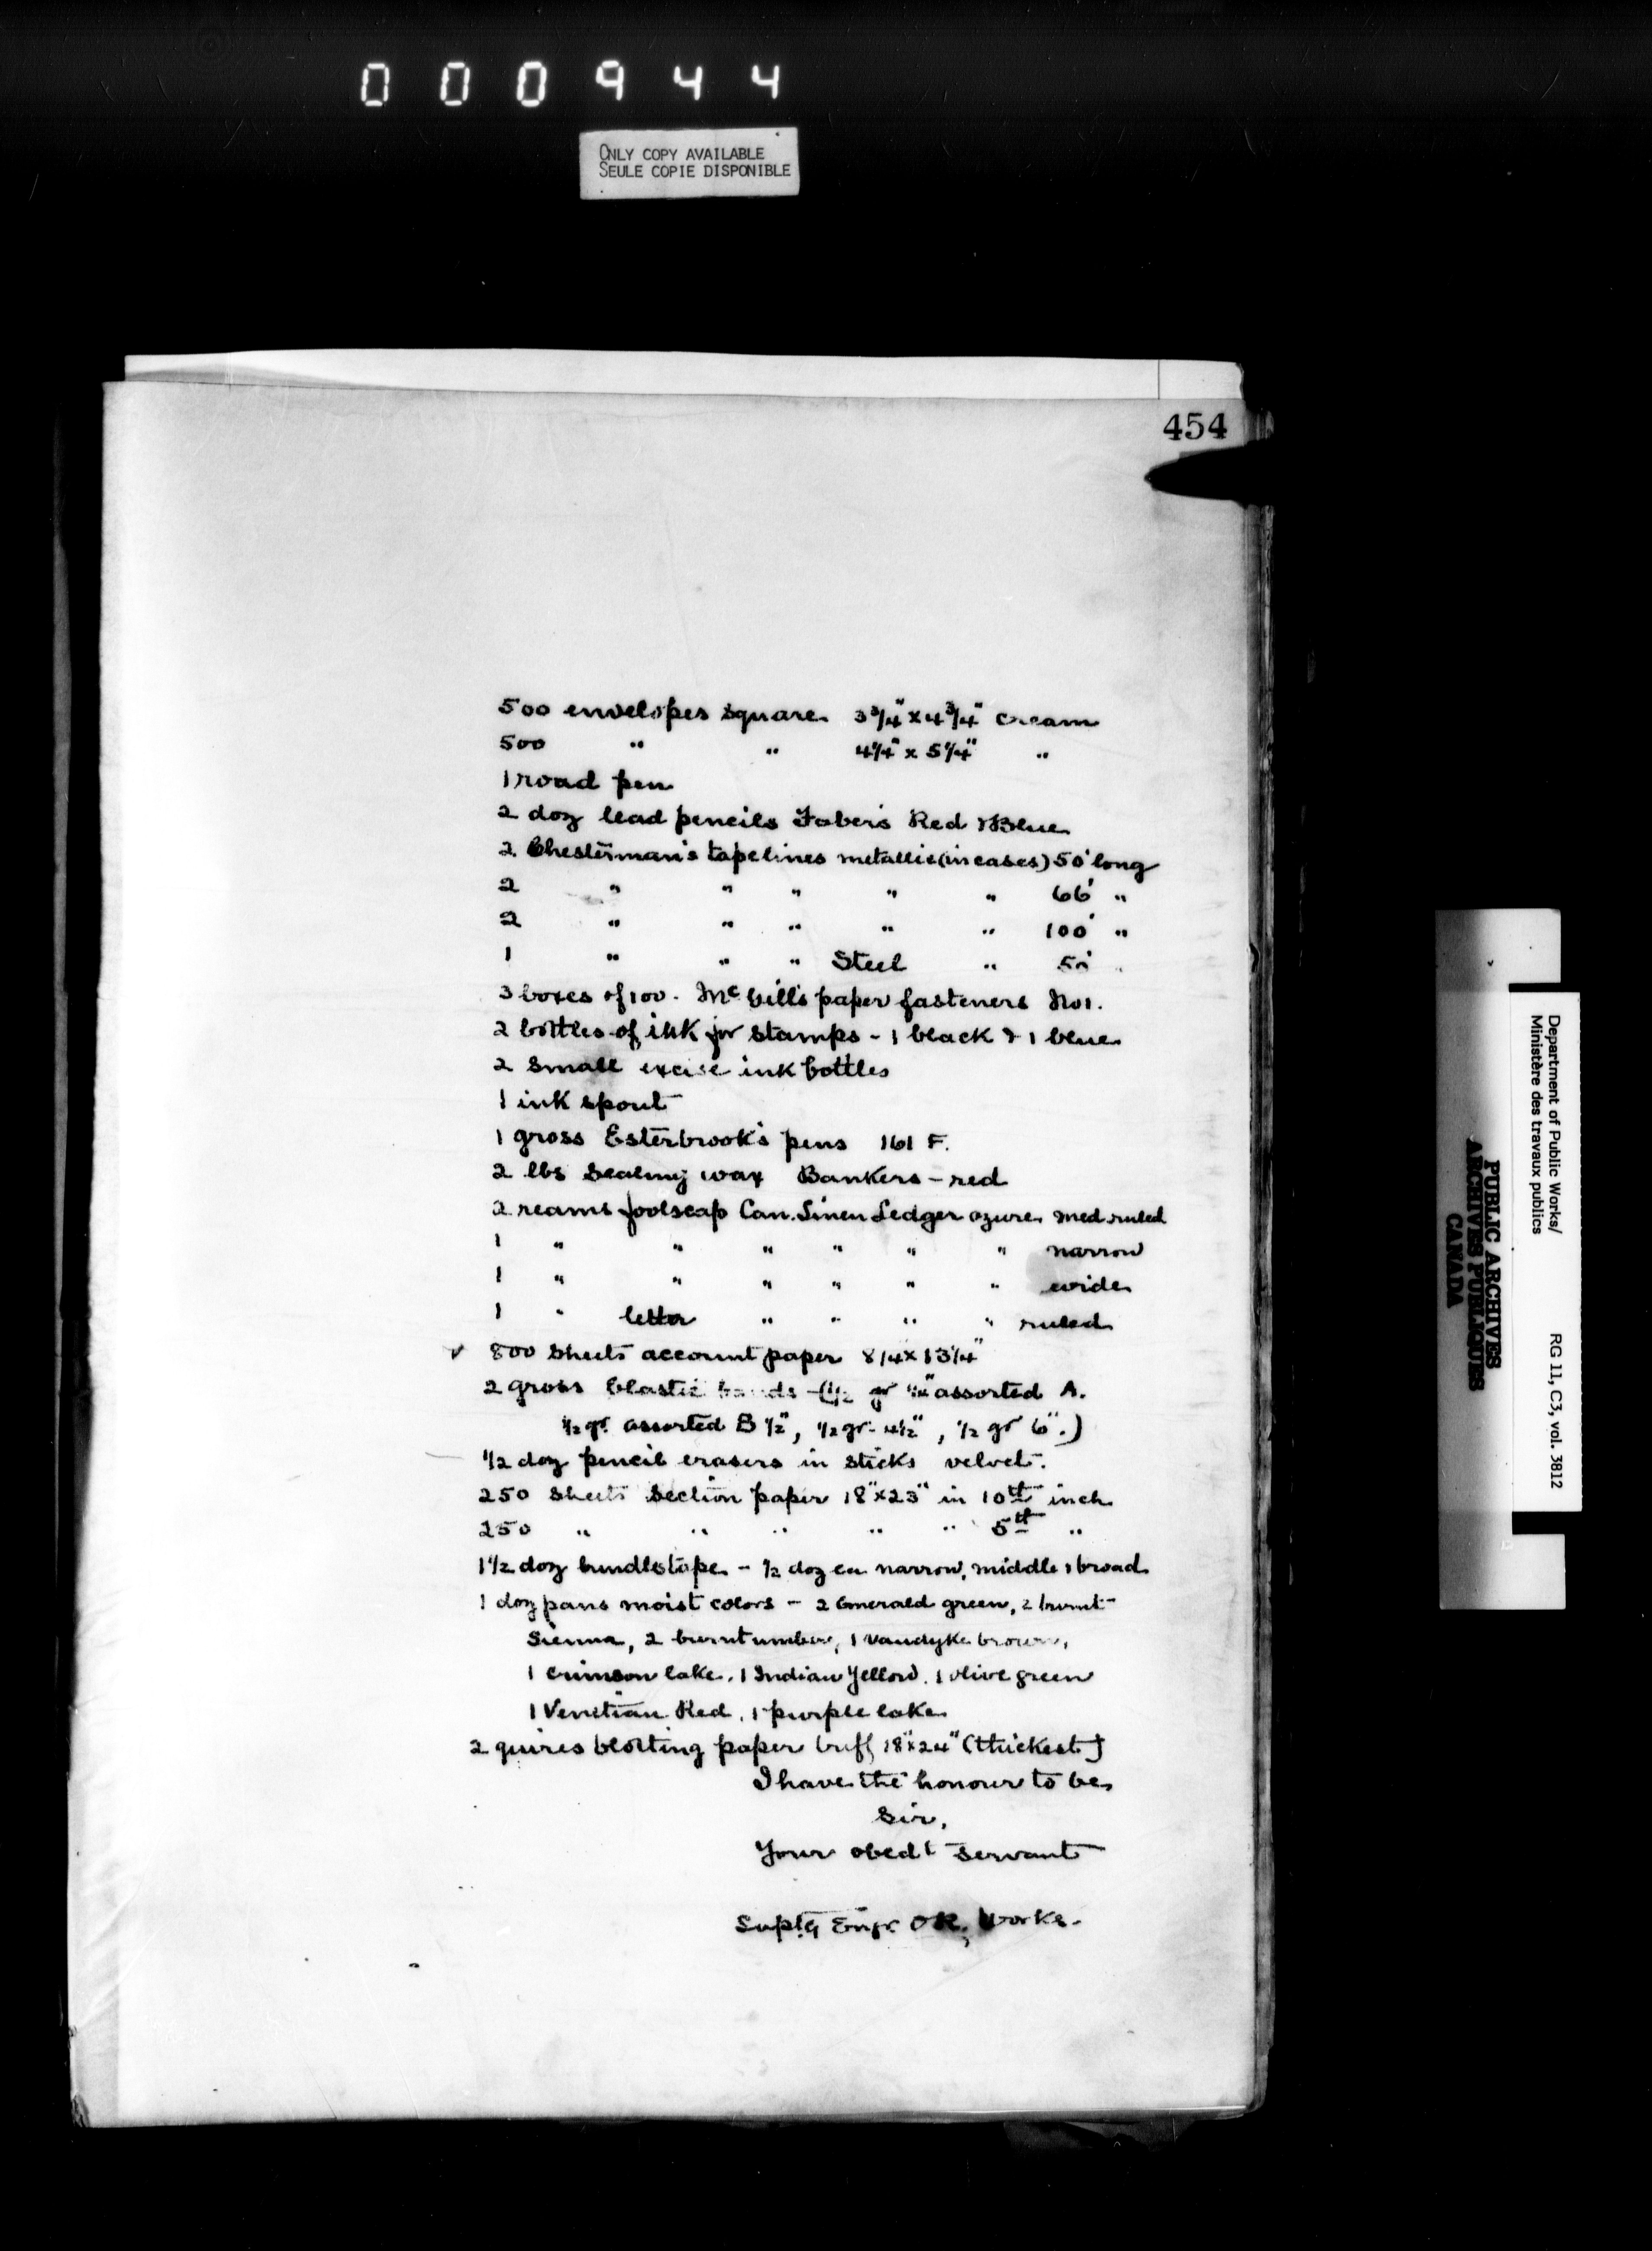 000944
ONLY COPY AVAILABLE
SEULE COPIE DISPONIBLE
454
500 envelopes square 3 3/4" x 4 3/4" cream
500 " " 4 1/4" x 5 1/4" "
1 road pen
2 doz lead pencils Faber's Red & Blue
2 Chesterman's tapelines metallic (in cases) 50' long
2 " " " " " 66' "
2 " " " " " 100' "
1 " " " Steel " 50' "
3 boxes of 100 - McGill's paper fasteners No 1.
2 bottles of ink for stamps - 1 black & 1 blue
2 small excise ink bottles
1 ink spout
1 gross Esterbrook's pens 161 F.
2 lbs sealing wax Bankers - red
2 reams foolscap Can. Linen Ledger azure med. ruled
1 " " " " " " narrow
1 " " " " " " wide
1 " letter " " " " ruled
✓ 800 sheets account paper 8 1/4 x 13 1/4"
2 gross elastic bands - (1/2 gr assorted A.
1/2 gr. assorted B 1/2", 1/2 gr. , 1/2 gr 6".)
1/2 doz pencil erasers in sticks velvet.
250 sheets section paper 18" x 23" in 10th inch
250 " " " " " 5th "
1 1/2 doz bundles tape - 1/2 doz ea narrow, middle & broad
1 doz pans moist colors - 2 Emerald green, 2 burnt
Sienna, 2 burnt umber, 1 Vandyke brown,
1 crimson lake, 1 Indian Yellow, 1 olive green
1 Venetian Red, 1 purple lake
2 quires blotting paper buff 18" x 24" (thickest)
I have the honour to be,
Sir,
Your obedt servant
Suptg Engr. O.R. Works.
Department of Public Works/
Ministère des travaux publics
RG 11, C3, vol. 3812
PUBLIC ARCHIVES
ARCHIVES PUBLIQUES
CANADA